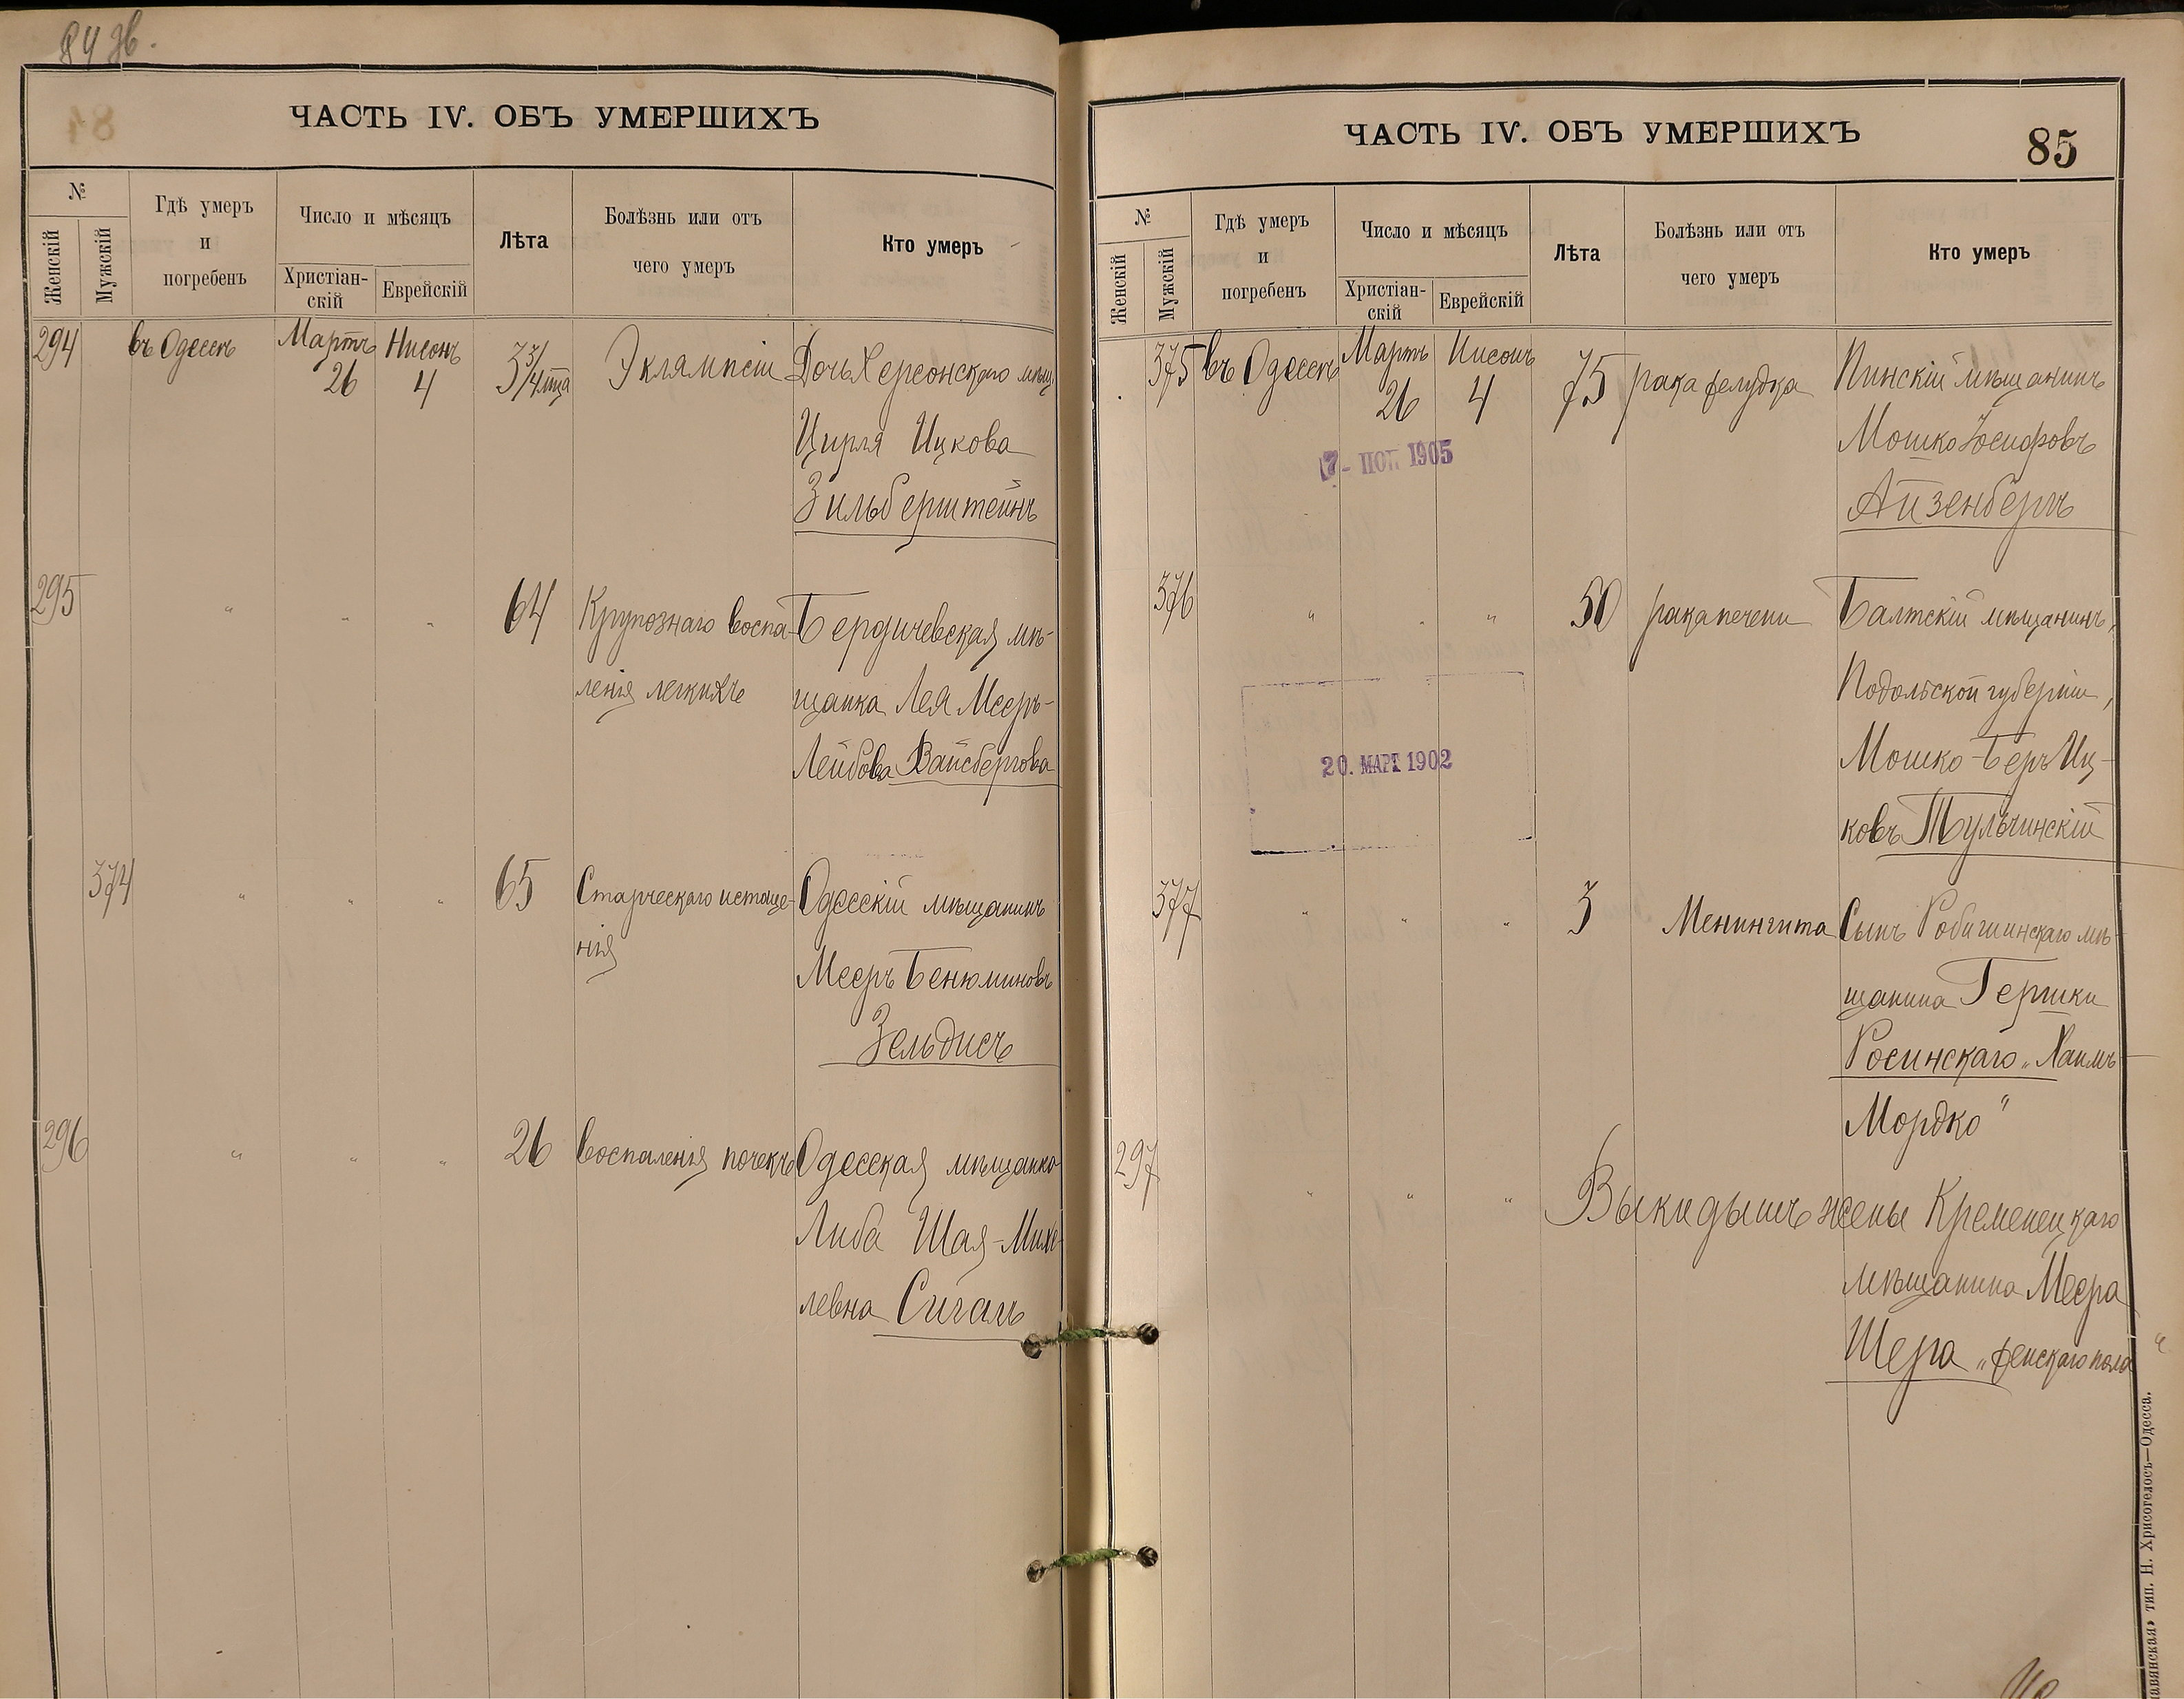 84 зв.
ЧАСТЬ IV. ОБЪ УМЕРШИХЪ
№
Женскій
Мужскій
Гдѣ умеръ
и
погребенъ
Число и мѣсяцъ
Христіан-
скій
Еврейскій
Лѣта
Болѣзнь или отъ
чего умеръ
Кто умеръ
294 въ Одессѣ Мартъ 26 Нисонъ 4 3 3/4 мца Эклямпсіи Дочь Херсонскаго мѣщ
Цирля Ицкова
Зильберштейнъ
295 " " " 64 Крупознаго воспа- Бердичевская мѣ-
ленія легкихъ щанка Лея Мееръ-
Лейбова Вайсбергова
374 " " " 65 Старческаго истоще- Одесскій мѣщанинъ
нія Мееръ Бенюминовъ
Зельдисъ
296 " " " 26 воспаленія почекъ Одесская мѣщанка
Либа Шая-Михе-
левна Сигалъ
ЧАСТЬ IV. ОБЪ УМЕРШИХЪ
85
№
Женскій
Мужскій
Гдѣ умеръ
и
погребенъ
Число и мѣсяцъ
Христіан-
скій
Еврейскій
Лѣта
Болѣзнь или отъ
чего умеръ
Кто умеръ
375 въ Одессѣ Мартъ 26 Нисонъ 4 75 рака желудка Пинскій мѣщанинъ
Мошко Іосифовъ
Айзенбергъ
1905
376 " " " 50 рака печени Балтскій мѣщанинъ,
Подольской губерніи,
Мошко-Беръ Иц-
ковъ Тульчинскій
20. МАРТ 1902
377 " " " 3 Менингита Сынъ мѣ-
щанина Гершки
Росинскаго „Хаимъ
Мордко"
297 " " " Выкидышъ жены Кременецкаго
мѣщанина Меера
Шера „женскаго пола"
тип. Н. Хрисогелосъ—Одесса.